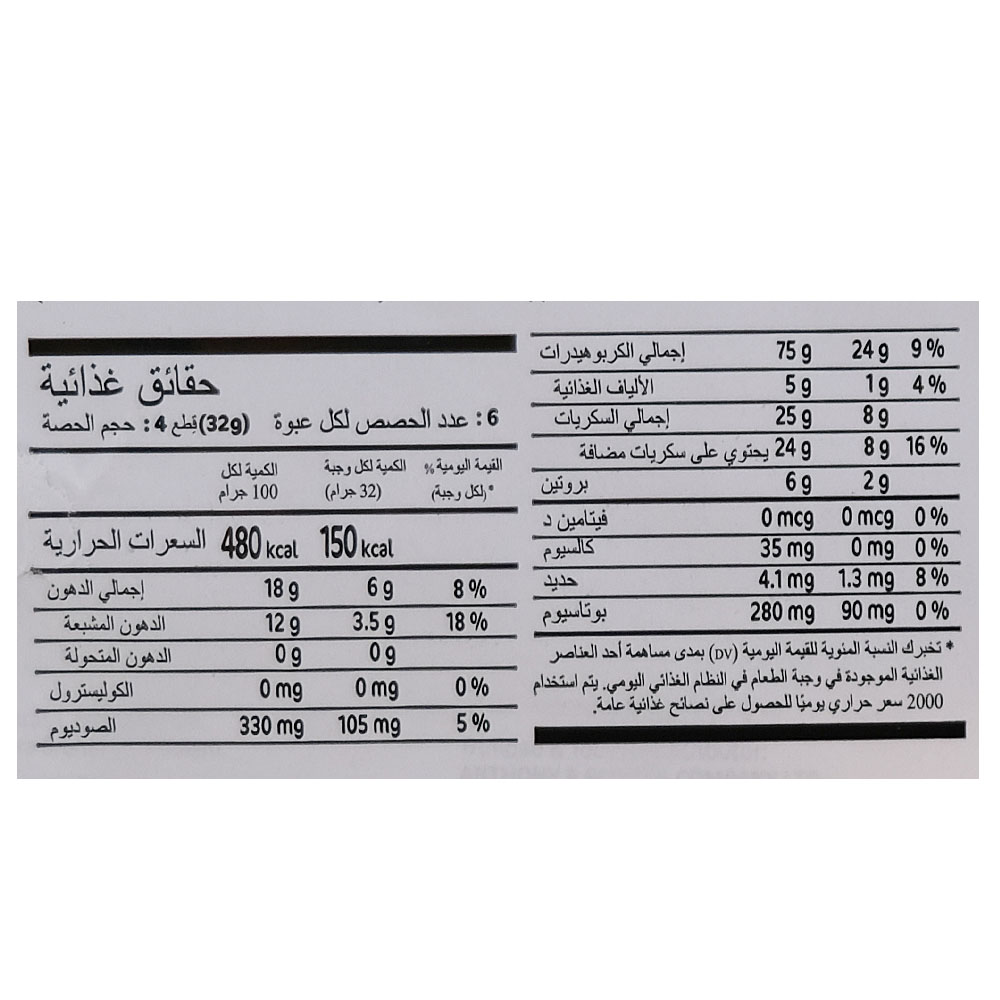 حقائق غذائية
6 : عدد الحصص لكل عبوة (32g) قطع 4 : حجم الحصة
الكمية لكل 100 جرام الكمية لكل وجبة (32 جرام) القيمة اليومية % *(لكل وجبة)
السعرات الحرارية 480 kcal 150 kcal
إجمالي الدهون 18 g 6 g 8 %
الدهون المشبعة 12 g 3.5 g 18 %
الدهون المتحولة 0 g 0 g
الكوليسترول 0 mg 0 mg 0 %
الصوديوم 330 mg 105 mg 5 %
إجمالي الكربوهيدرات 75 g 24 g 9 %
الألياف الغذائية 5 g 1 g 4 %
إجمالي السكريات 25 g 8 g
يحتوي على سكريات مضافة 24 g 8 g 16 %
بروتين 6 g 2 g
فيتامين د 0 mcg 0 mcg 0 %
كالسيوم 35 mg 0 mg 0 %
حديد 4.1 mg 1.3 mg 8 %
بوتاسيوم 280 mg 90 mg 0 %
* تخبرك النسبة المئوية للقيمة اليومية (DV) بمدى مساهمة أحد العناصر
الغذائية الموجودة في وجبة الطعام في النظام الغذائي اليومي. يتم استخدام
2000 سعر حراري يوميًا للحصول على نصائح غذائية عامة.